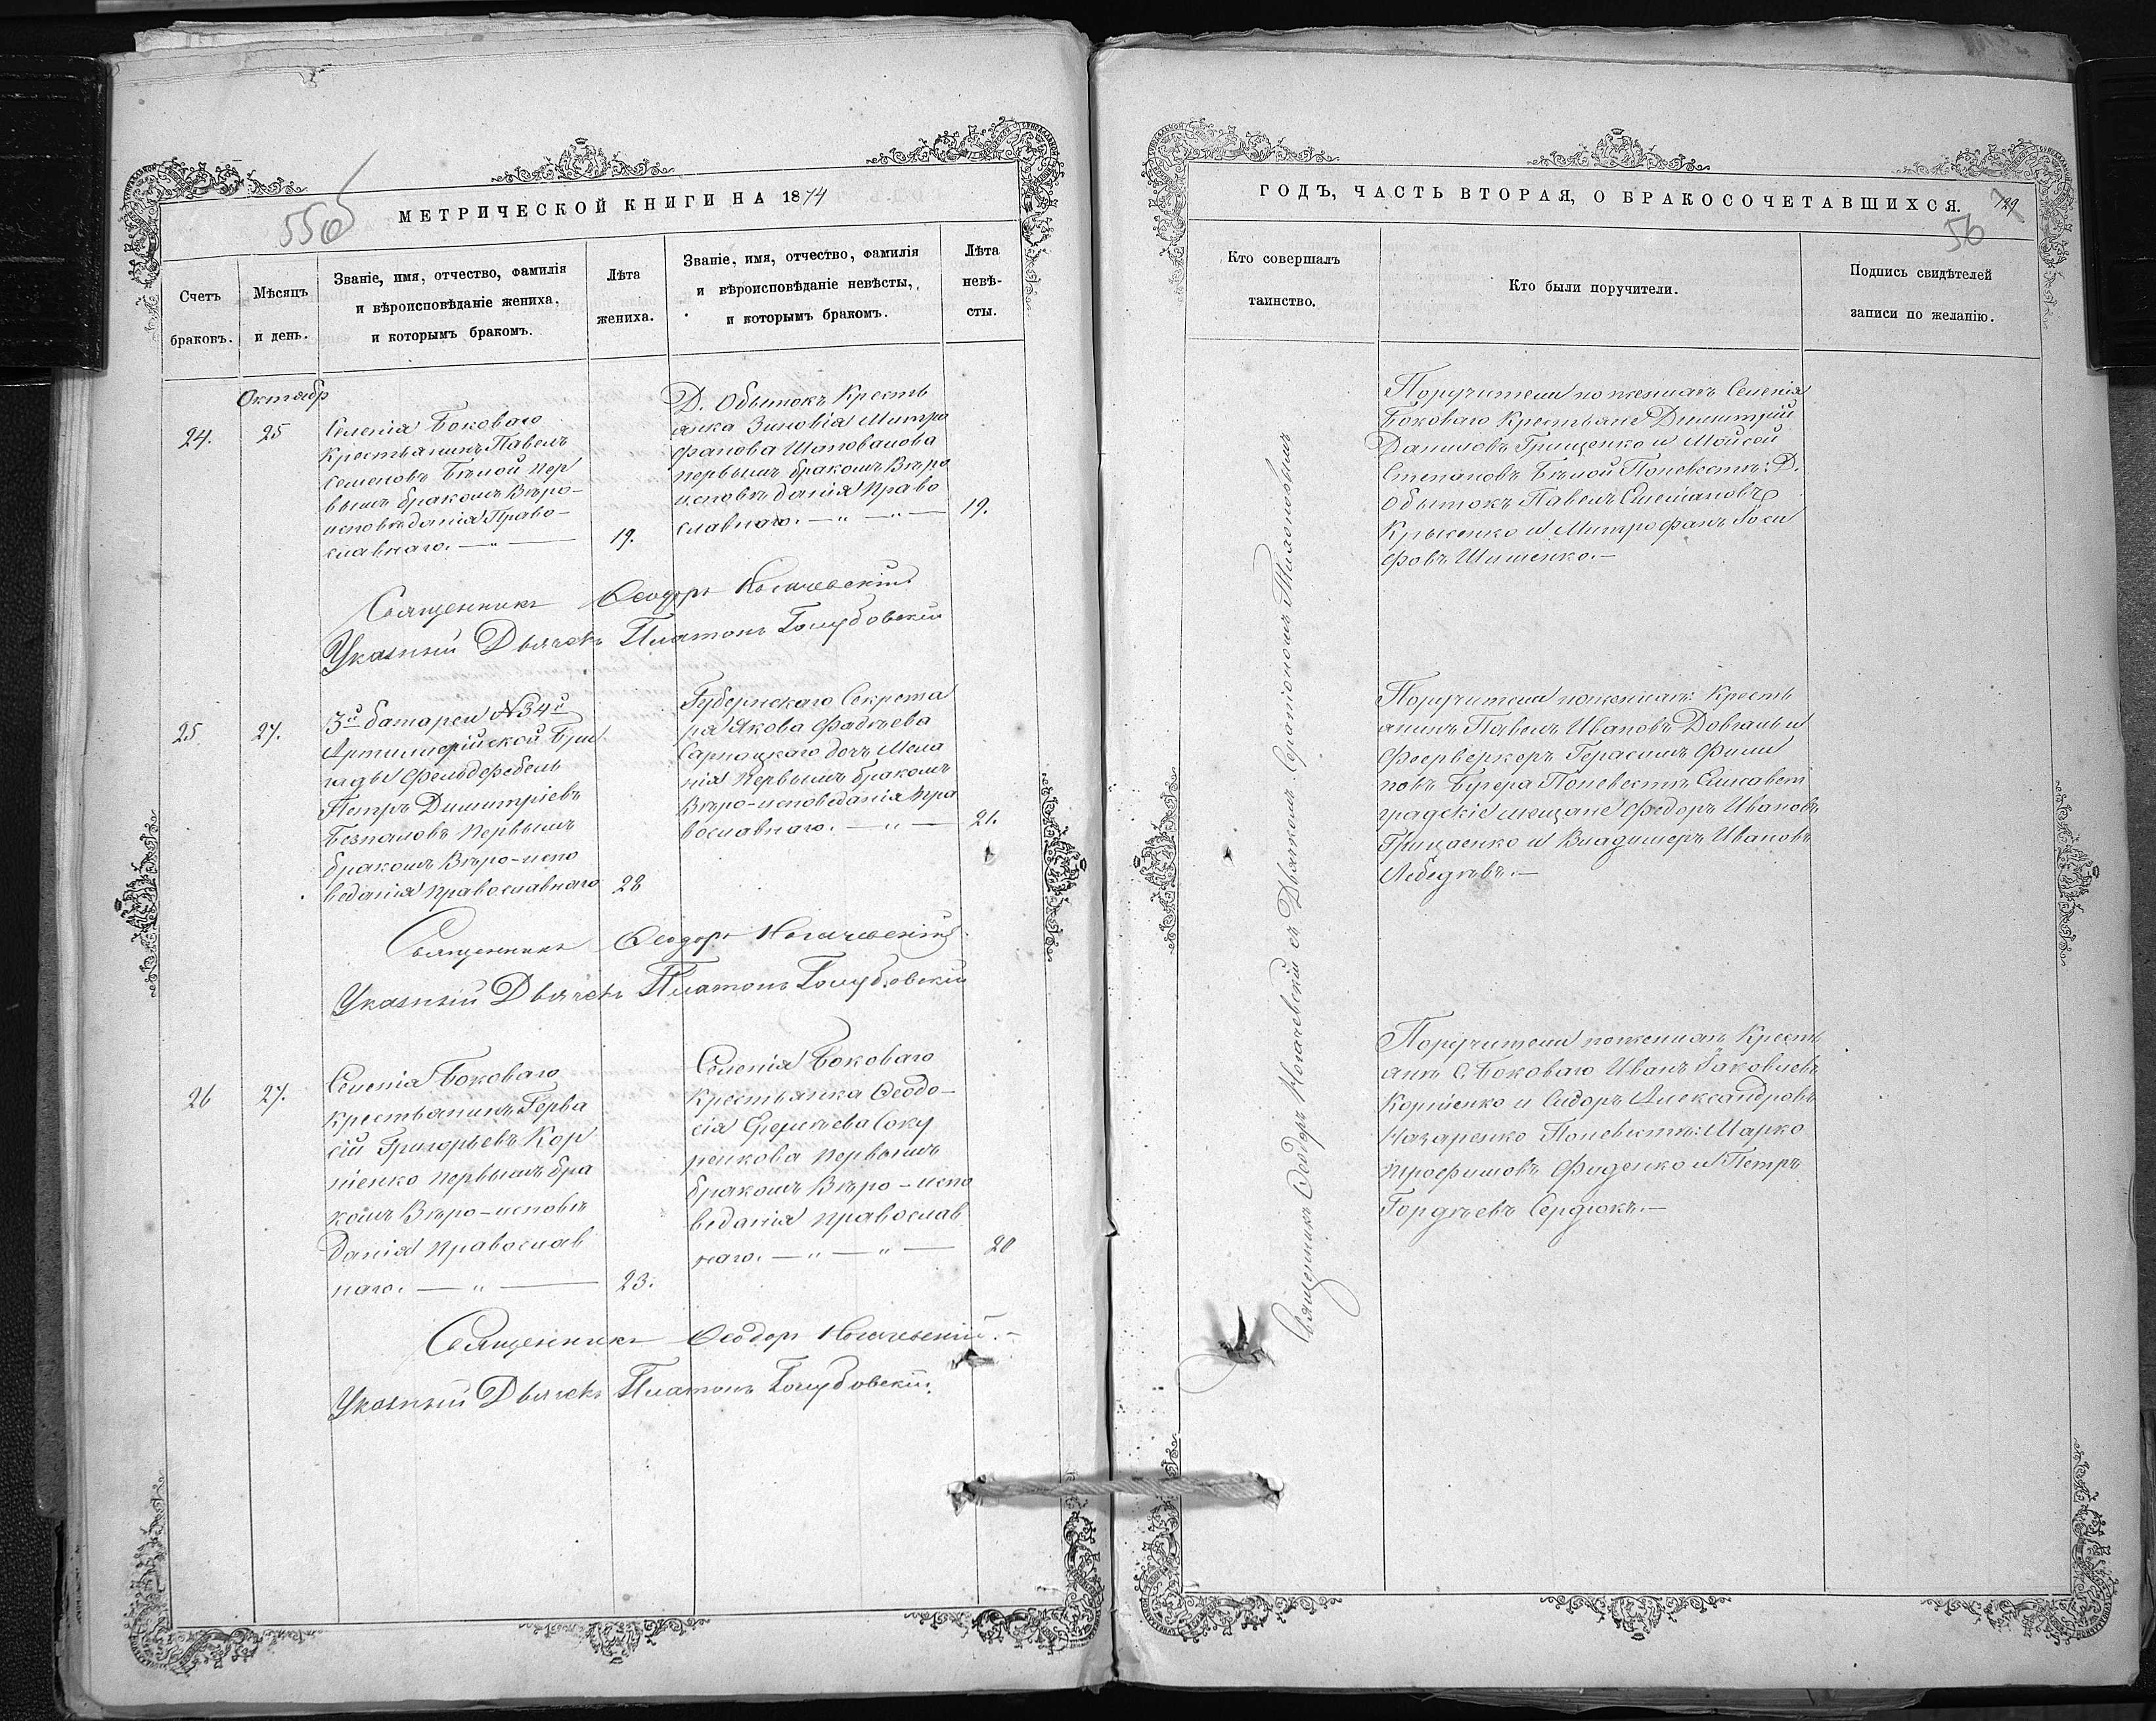 55об
МЕТРИЧЕСКОЙ КНИГИ НА 1874
Счетъ
браковъ.
Мѣсяцъ
и день.
Званіе, имя, отчество, фамилія
и вѣроисповѣданіе жениха,
и которымъ бракомъ.
Лѣта
жениха.
Званіе, имя, отчество, фамилія
и вѣроисповѣданіе невѣсты,
и которымъ бракомъ.
Лѣта
невѣ-
сты.
Октябр
24.
25
Селенія Боковаго
Крестьянинъ Павелъ
Семеновъ Бѣлой пер
вымъ бракомъ Вѣро-
исповѣданія Право-
славнаго. — „ —
19.
Д. Обытокъ Кресть
янка Зиновія Митро
фанова Шаповалова
первымъ бракомъ Вѣро
исповѣданія Право
славнаго. — „ — „ —
19.
Священникъ Ѳеодоръ
Указный Дьячокъ Платонъ Голубовскій
25
27.
3й батареи №34й
Артиллерійской Бри
гады Фельдфебель
Петръ Димитріевъ
Безпаловъ Первымъ
бракомъ Вѣро-испо
веданія православнаго
28
Губернскаго Секрета
ря Якова Фадѣева
Сарноцкаго дочь Мела
нія Первымъ бракомъ
Вѣро-исповеданія Пра
вославнаго. — „ —
21.
Священникъ Ѳеодоръ
Указный Дьячокъ Платонъ Голубовскій
26
27.
Селенія Боковаго
крестьянинъ Герва
сій Григорьевъ Кор
ніенко первымъ бра
комъ Вѣро-исповѣ
данія Православ
наго. — „ —
23.
Селенія Боковаго
крестьянка Ѳеодо-
сія Сергѣева Соку
ренкова первымъ
бракомъ Вѣро-испо
веданія православ
наго. — „ — „ —
20
Священникъ Ѳеодоръ
Указный Дьячокъ Платонъ Голубовскій.
ГОДЪ, ЧАСТЬ ВТОРАЯ, О БРАКОСОЧЕТАВШИХСЯ.
56
Кто совершалъ
таинство.
Кто были поручители.
Подпись свидѣтелей
записи по желанію.
Священникъ Ѳеодоръ съ Дьячкомъ
Поручители по женихѣ Селенія
Боковаго Крестьяне Димитрій
Даниловъ Грищенко и Мойсей
Степановъ Бѣлой По невестѣ: Д.
Обытокъ Павелъ
Крысенко и Митрофанъ Іоси
фовъ Шишенко. —
Поручители по женихѣ: Кресть
янинъ Павелъ Ивановъ Довгаль и
Феерверкеръ Герасимъ Фили
повъ По невестѣ Елисавет
градскіе мещане Федоръ Ивановъ
Грищенко и Владимеръ Ивановъ
Лебедѣвъ. —
Поручители по женихѣ Кресть
янъ С. Боковаго Иванъ Іаковлевъ
Корніенко и Сидоръ Александровъ
Назаренко По невестѣ: Марко
Трофимовъ Фиденко и Петръ
Гордѣевъ Сердюкъ. —